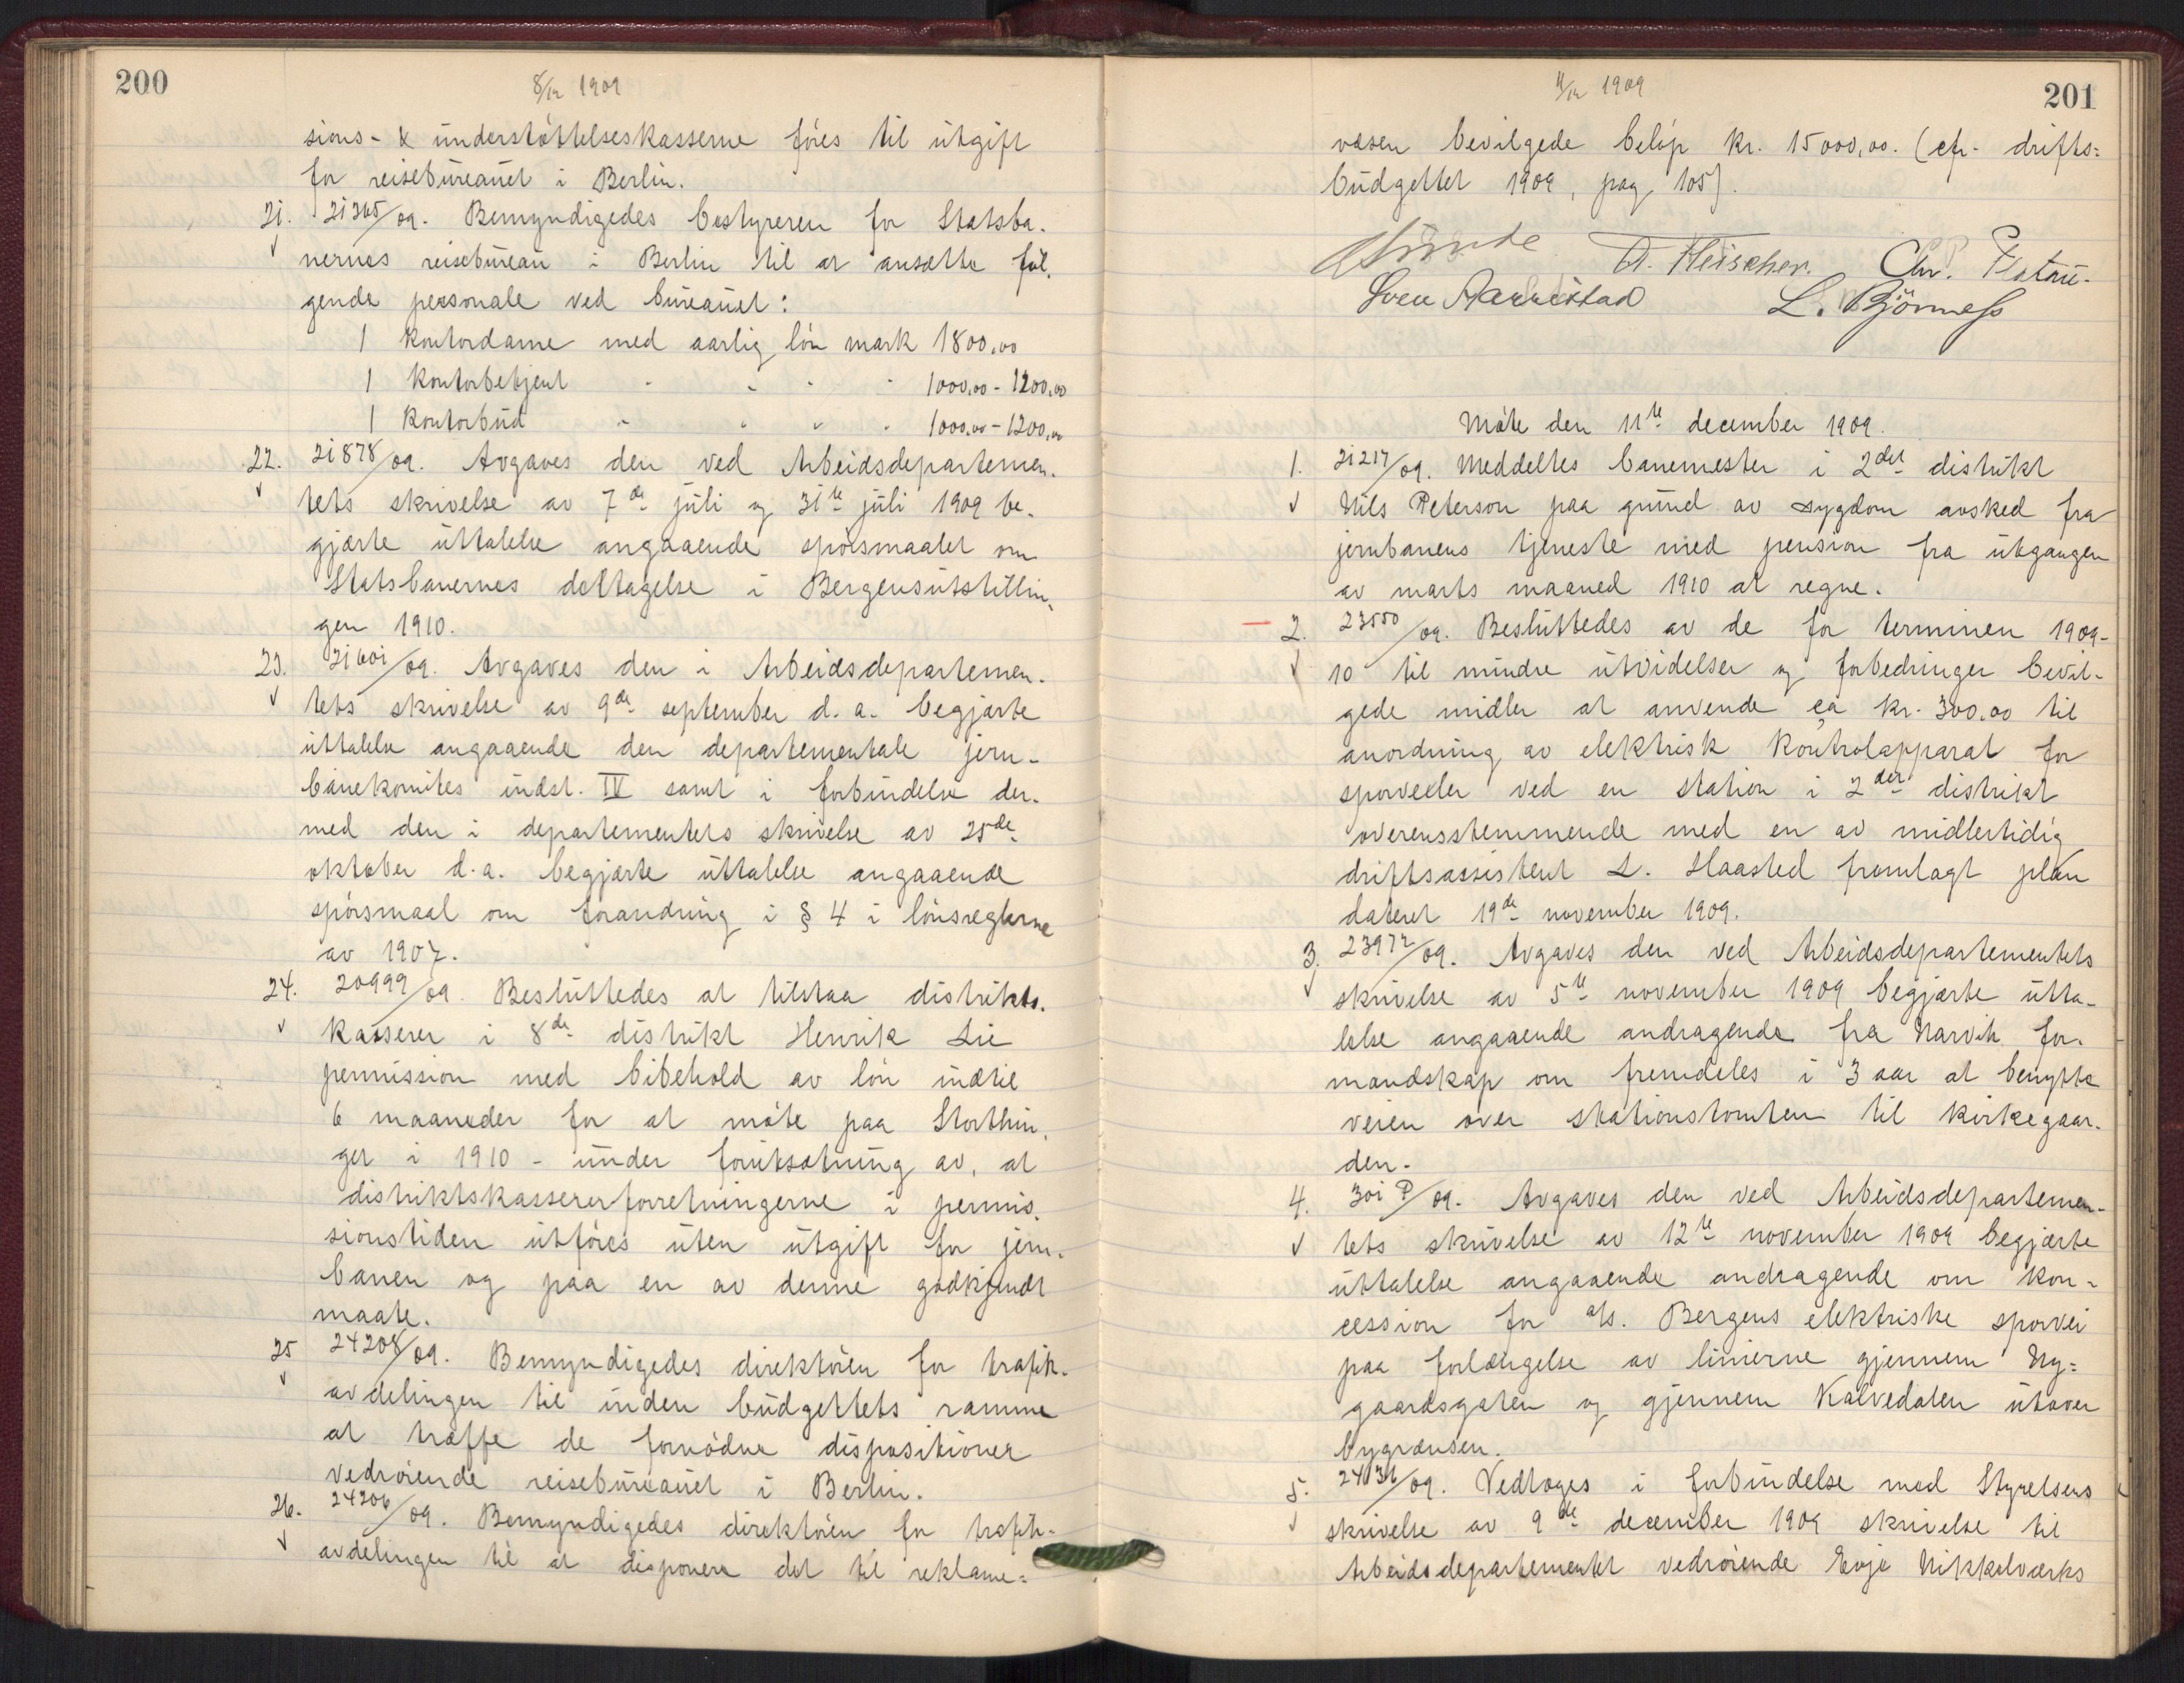 200
8/12 1909
sions- & understøttelseskasserne føres til utgift
for reisebureauet i Berlin.
21. 21365/09. Bemyndigedes bestyreren for Statsba-
nernes reisebureau i Berlin til at ansætte føl-
gende personale ved bureauet:
1 kontordame med aarlig løn mark 1800,00
1 kontorbetjent " " " " 1000,00 - 1200,00
1 kontorbud " " " " 1000,00 - 1200,00
22. 21878/09. Avgaves den ved Arbeidsdepartemen-
tets skrivelse av 7de juli og 31te juli 1909 be-
gjærte uttalelse angaaende spørsmaalet om
Statsbanernes deltagelse i Bergensutstillin-
gen 1910.
23. 21601/09. Avgaves den i Arbeidsdepartemen-
tets skrivelse av 9de september d.a. begjærte
uttalelse angaaende den departementale jern-
banekomites indst. IV samt i forbindelse der-
med den i departementets skrivelse av 25de
oktober d.a. begjærte uttalelse angaaende
spørsmaal om forandring i § 4 i lønsreglerne
av 1907.
24. 20999/09. Besluttedes at tilstaa distrikts-
kasserer i 8de distrikt Henrik Lie
permission med bibehold av løn indtil
6 maaneder for at møte paa Storthin-
get i 1910 - under forutsætning av, at
distriktskassererforretningerne i permis-
sionstiden utføres uten utgift for jern-
banen og paa en av denne godkjendt
maate.
25 24208/09. Bemyndigedes direktøren for trafik-
avdelingen til inden budgettets ramme
at træffe de fornødne dispositioner
vedrørende reisebureauet i Berlin.
26. 24206/09. Bemyndigedes direktøren for trafik-
avdelingen til at disponere det til reklame=
11/12 1909
201
væsen bevilgede beløp kr. 15000,00. (cfr. drifts=
budgettet 1909, pag. 105).
A. Fleischer. Chr. Platou.
Sven Aarrestad L. Bjørness
Møte den 11te december 1909.
1. 21217/09. Meddeltes banemester i 2det distrikt
Nils Peterson paa grund av sygdom avsked fra
jernbanens tjeneste med pension fra utgangen
av marts maaned 1910 at regne.
2. 23550/09. Besluttedes av de for terminen 1909-
10 til mindre utvidelser og forbedringer bevil-
gede midler at anvende ca kr. 300,00 til
anordning av elektrisk kontrolapparat for
sporvexler ved en station i 2det distrikt
overensstemmende med en av midlertidig
driftsassistent L. Haasted fremlagt plan
dateret 19de november 1909.
3. 23972/09. Avgaves den ved Arbeidsdepartementets
skrivelse av 5te november 1909 begjærte utta-
lelse angaaende andragende fra Narvik for-
mandskap om fremdeles i 3 aar at benytte
veien over stationstomten til kirkegaar-
den.
4. 301 P/09. Avgaves den ved Arbeidsdepartemen-
tets skrivelse av 12te november 1909 begjærte
uttalelse angaaende andragende om kon-
cession for a/s. Bergens elektriske sporvei
paa forlængelse av linierne gjennem Ny=
gaardsgaten og gjennem Kalvedalen utover
bygrænsen.
5. 24136/09. Vedtoges i forbindelse med Styrelsens
skrivelse av 9de december 1909 skrivelse til
Arbeidsdepartementet vedrørende Evje Nikkelverks